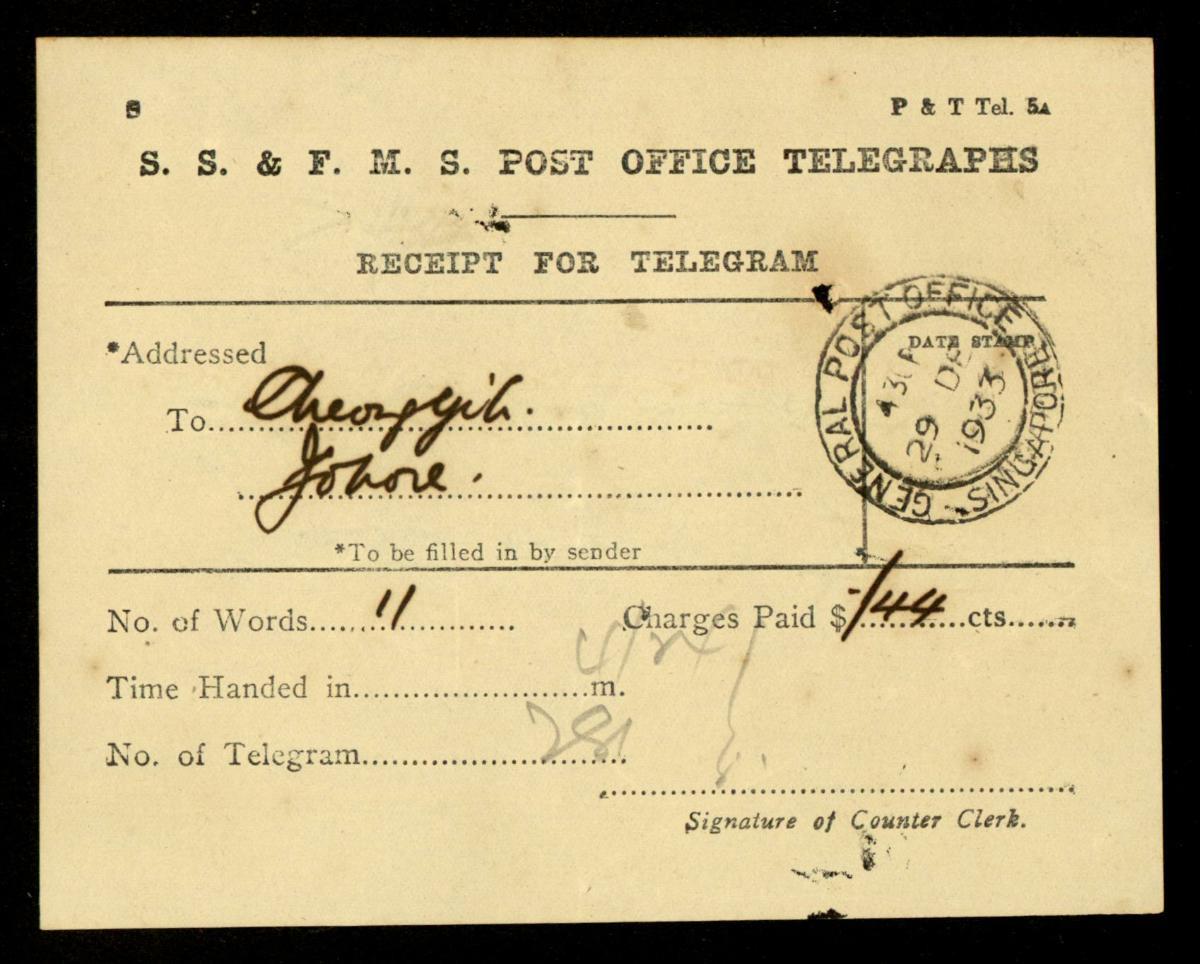 S
P & T Tel. 5A
S. S. & F. M. S. POST OFFICE TELEGRAPHS
RECEIPT FOR TELEGRAM
DATE STAMP
GENERAL POST OFFICE SINGAPORE
430P
29 DE
1933
*Addressed
To Cheongyih.
Johore.
*To be filled in by sender
No. of Words 11 Charges Paid $ -/44 cts
Time Handed in m.
No. of Telegram 281
Signature of Counter Clerk.